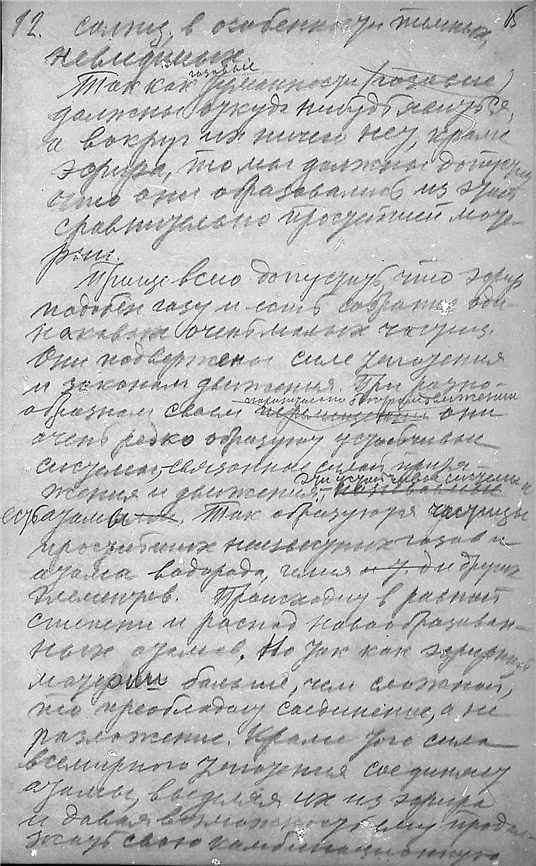 12. солнц, в особенности темных, 15
невидимых.
Так как газовые туманности (газовые)
должны откуда нибудь взяться,
а вокруг их ничего нет, кроме
эфира, то мы должны допустить
что они образовались из этой
сравнительно простейшей мате-
рии.
Проще всего допустить что эфир
подобен газу и есть собрание оди-
наковых очень малых частиц.
Они подвержены силе тяготения
и законам движения. При разно-
образном своем движении они
очень редко образуют устойчивые
системы, связанные силой притя-
жения и движения. Эти устойчивые системы и
есть атомы. Так образуются частицы
простейших неизвестных газов и
атома водорода, гелия и т. д. и других
элементов. Происходит в равной
степени и распад новообразован-
ных атомов. Но так как эфирной
материи больше, чем сложной,
то преобладает соединение, а не
разложение. Кроме того сила
всемирного тяготения соединяет
атомы, выделяя их из эфира
и давая возможность ему продол-
жать свою комбинационную